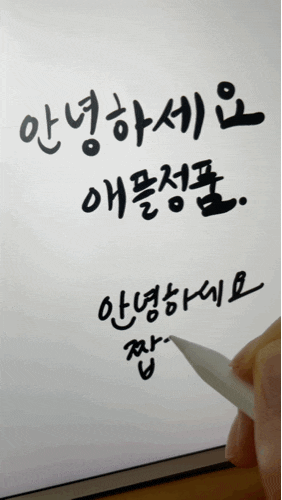 안녕하세요
애플정품.
안녕하세요
짭